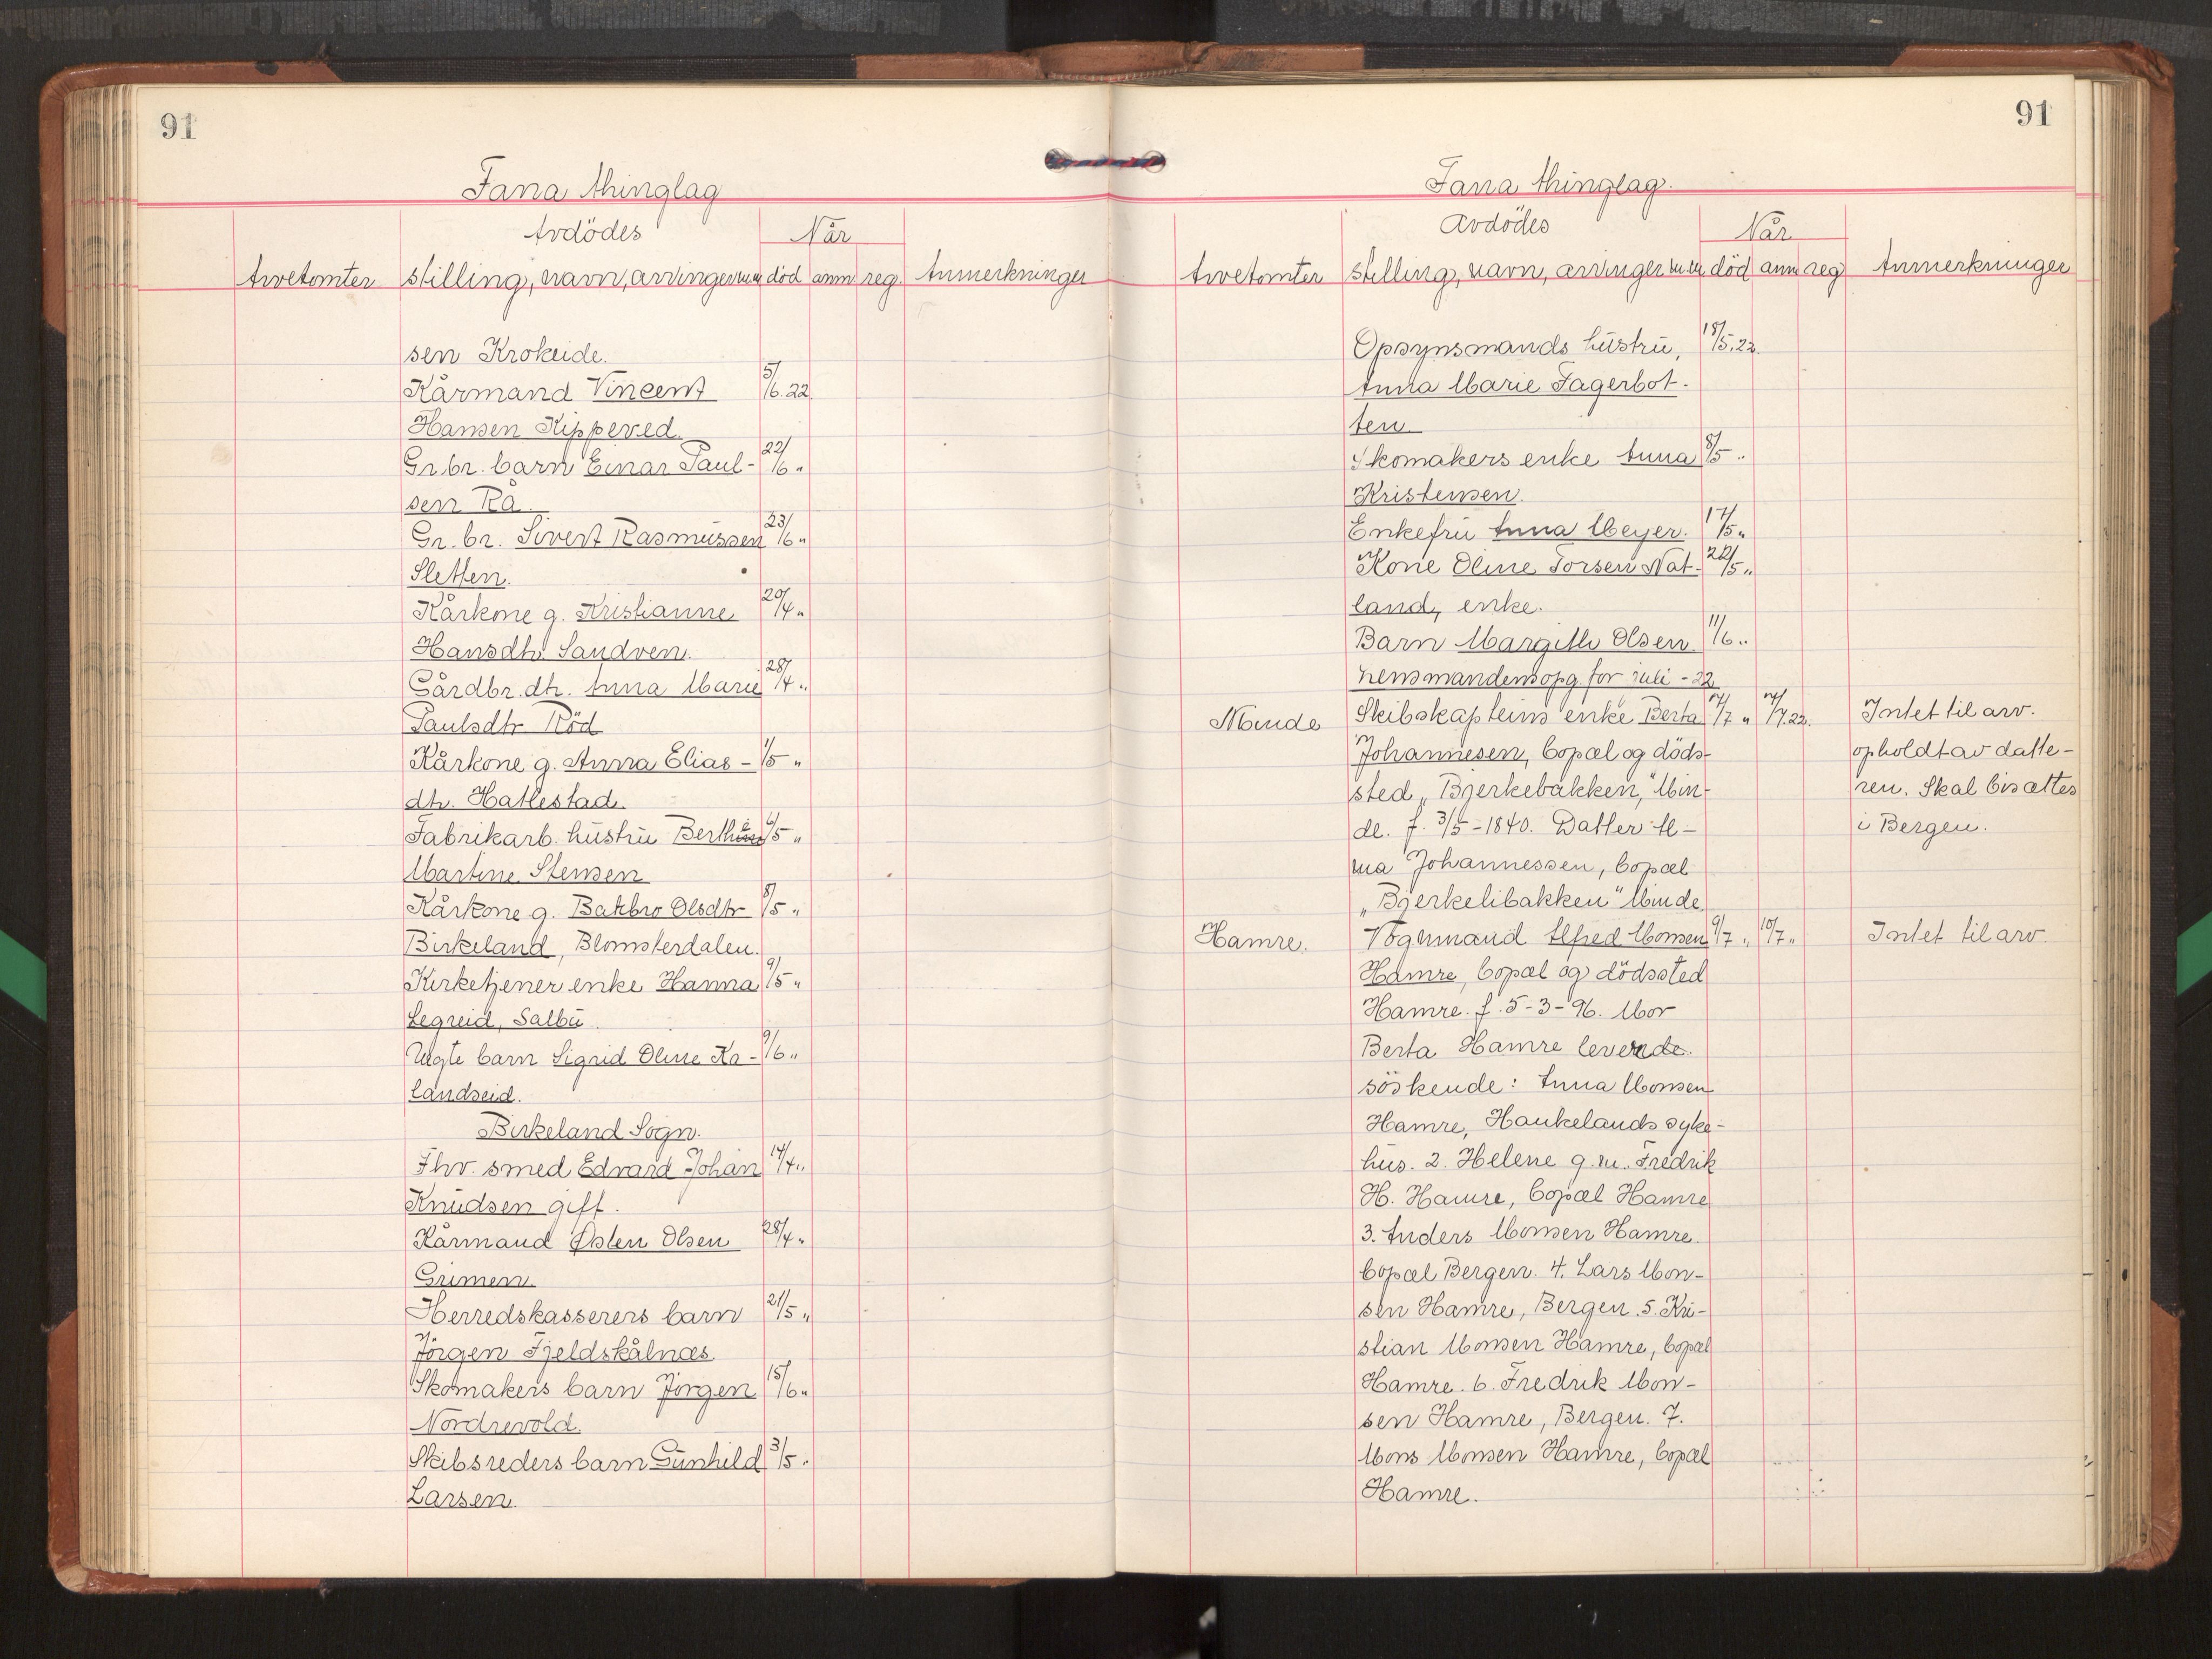 91
Fana thinglag
Avdödes
Når
Arvetomter stilling, navn, arvinger m.m. död anm reg. Anmerkninger
sen Krokeide.
Kårmand Vincent 5/6.22.
Hansen Kipperved.
Gr.br. barn Einar Paul- 22/6 "
sen Rå.
Gr.br. Sivert Rasmussen 23/6 "
Sletten.
Kårkone g. Kristianne 20/4 "
Hansdtr Sandven.
Gårdbr.dtr. Anna Marie 28/4 "
Paulsdtr Röd
Kårkone g. Anna Elias- 1/5 "
dtr. Hatlestad.
Fabrikarb. hustru Berthe 6/5 "
Martine Stensen
Kårkone g. Batbro Olsdtr 8/5 "
Birkeland, Blomsterdalen.
Kirketjener enke Hanna 9/5 "
Legreid, Salbu.
Uegte barn Sigrid Oline Ka- 9/6 "
landseid.
Birkeland Sogn.
Fhv. smed Edvard Johan 14/4 "
Knudsen gift.
Kårmand Østen Olsen 28/4 "
Grimen
Herredskasserers barn 21/5 "
Jörgen Fjeldskålnæs.
Skomakers barn Jörgen 15/6 "
Nordrevold.
Skibsreders barn Gunhild 3/5 "
Larsen.
91
Fana thinglag.
Avdödes
Når
Arvetomter stilling, navn, arvinger m.m. död anm reg Anmerkninger
Opsynsmands hustru, 18/5.22.
Anna Marie Fagerbot-
ten.
Skomakers enke Anna 8/5 "
Kristensen.
Enkefru Anna Meyer. 17/5 "
Kone Oline Torsen Nat- 22/5 "
land, enke.
Barn Margith Olsen. 11/6 "
Lensmandens opg. for juli - 22
Minde Skibskapteins enke Berta 4/7 " 14/7.22. Intet til arv.
Johannesen, bopæl og döds- opholdt av datte-
sted "Bjerkebakken," Min- ren. Skal bisættes
de. f. 3/5 - 1840. Datter Al- i Bergen.
ma Johannessen, bopæl
"Bjerkelibakken" Minde.
Hamre. Vognmand Alfred Monsen 9/7 " 10/7 " Intet til arv.
Hamre, bopæl og dödssted
Hamre. f. 5-3-96. Mor
Berta Hamre levende.
söskende: Anna Monsen
Hamre, Haukelands syke-
hus. 2. Helene g.m. Fredrik
H. Hamre, bopæl Hamre
3. Anders Monsen Hamre.
bopæl Bergen. 4. Lars Mon-
sen Hamre, Bergen. 5. Kri-
stian Monsen Hamre, bopæl
Hamre. 6. Fredrik Mon-
sen Hamre, Bergen. 7.
Mons Monsen Hamre, bopæl
Hamre.